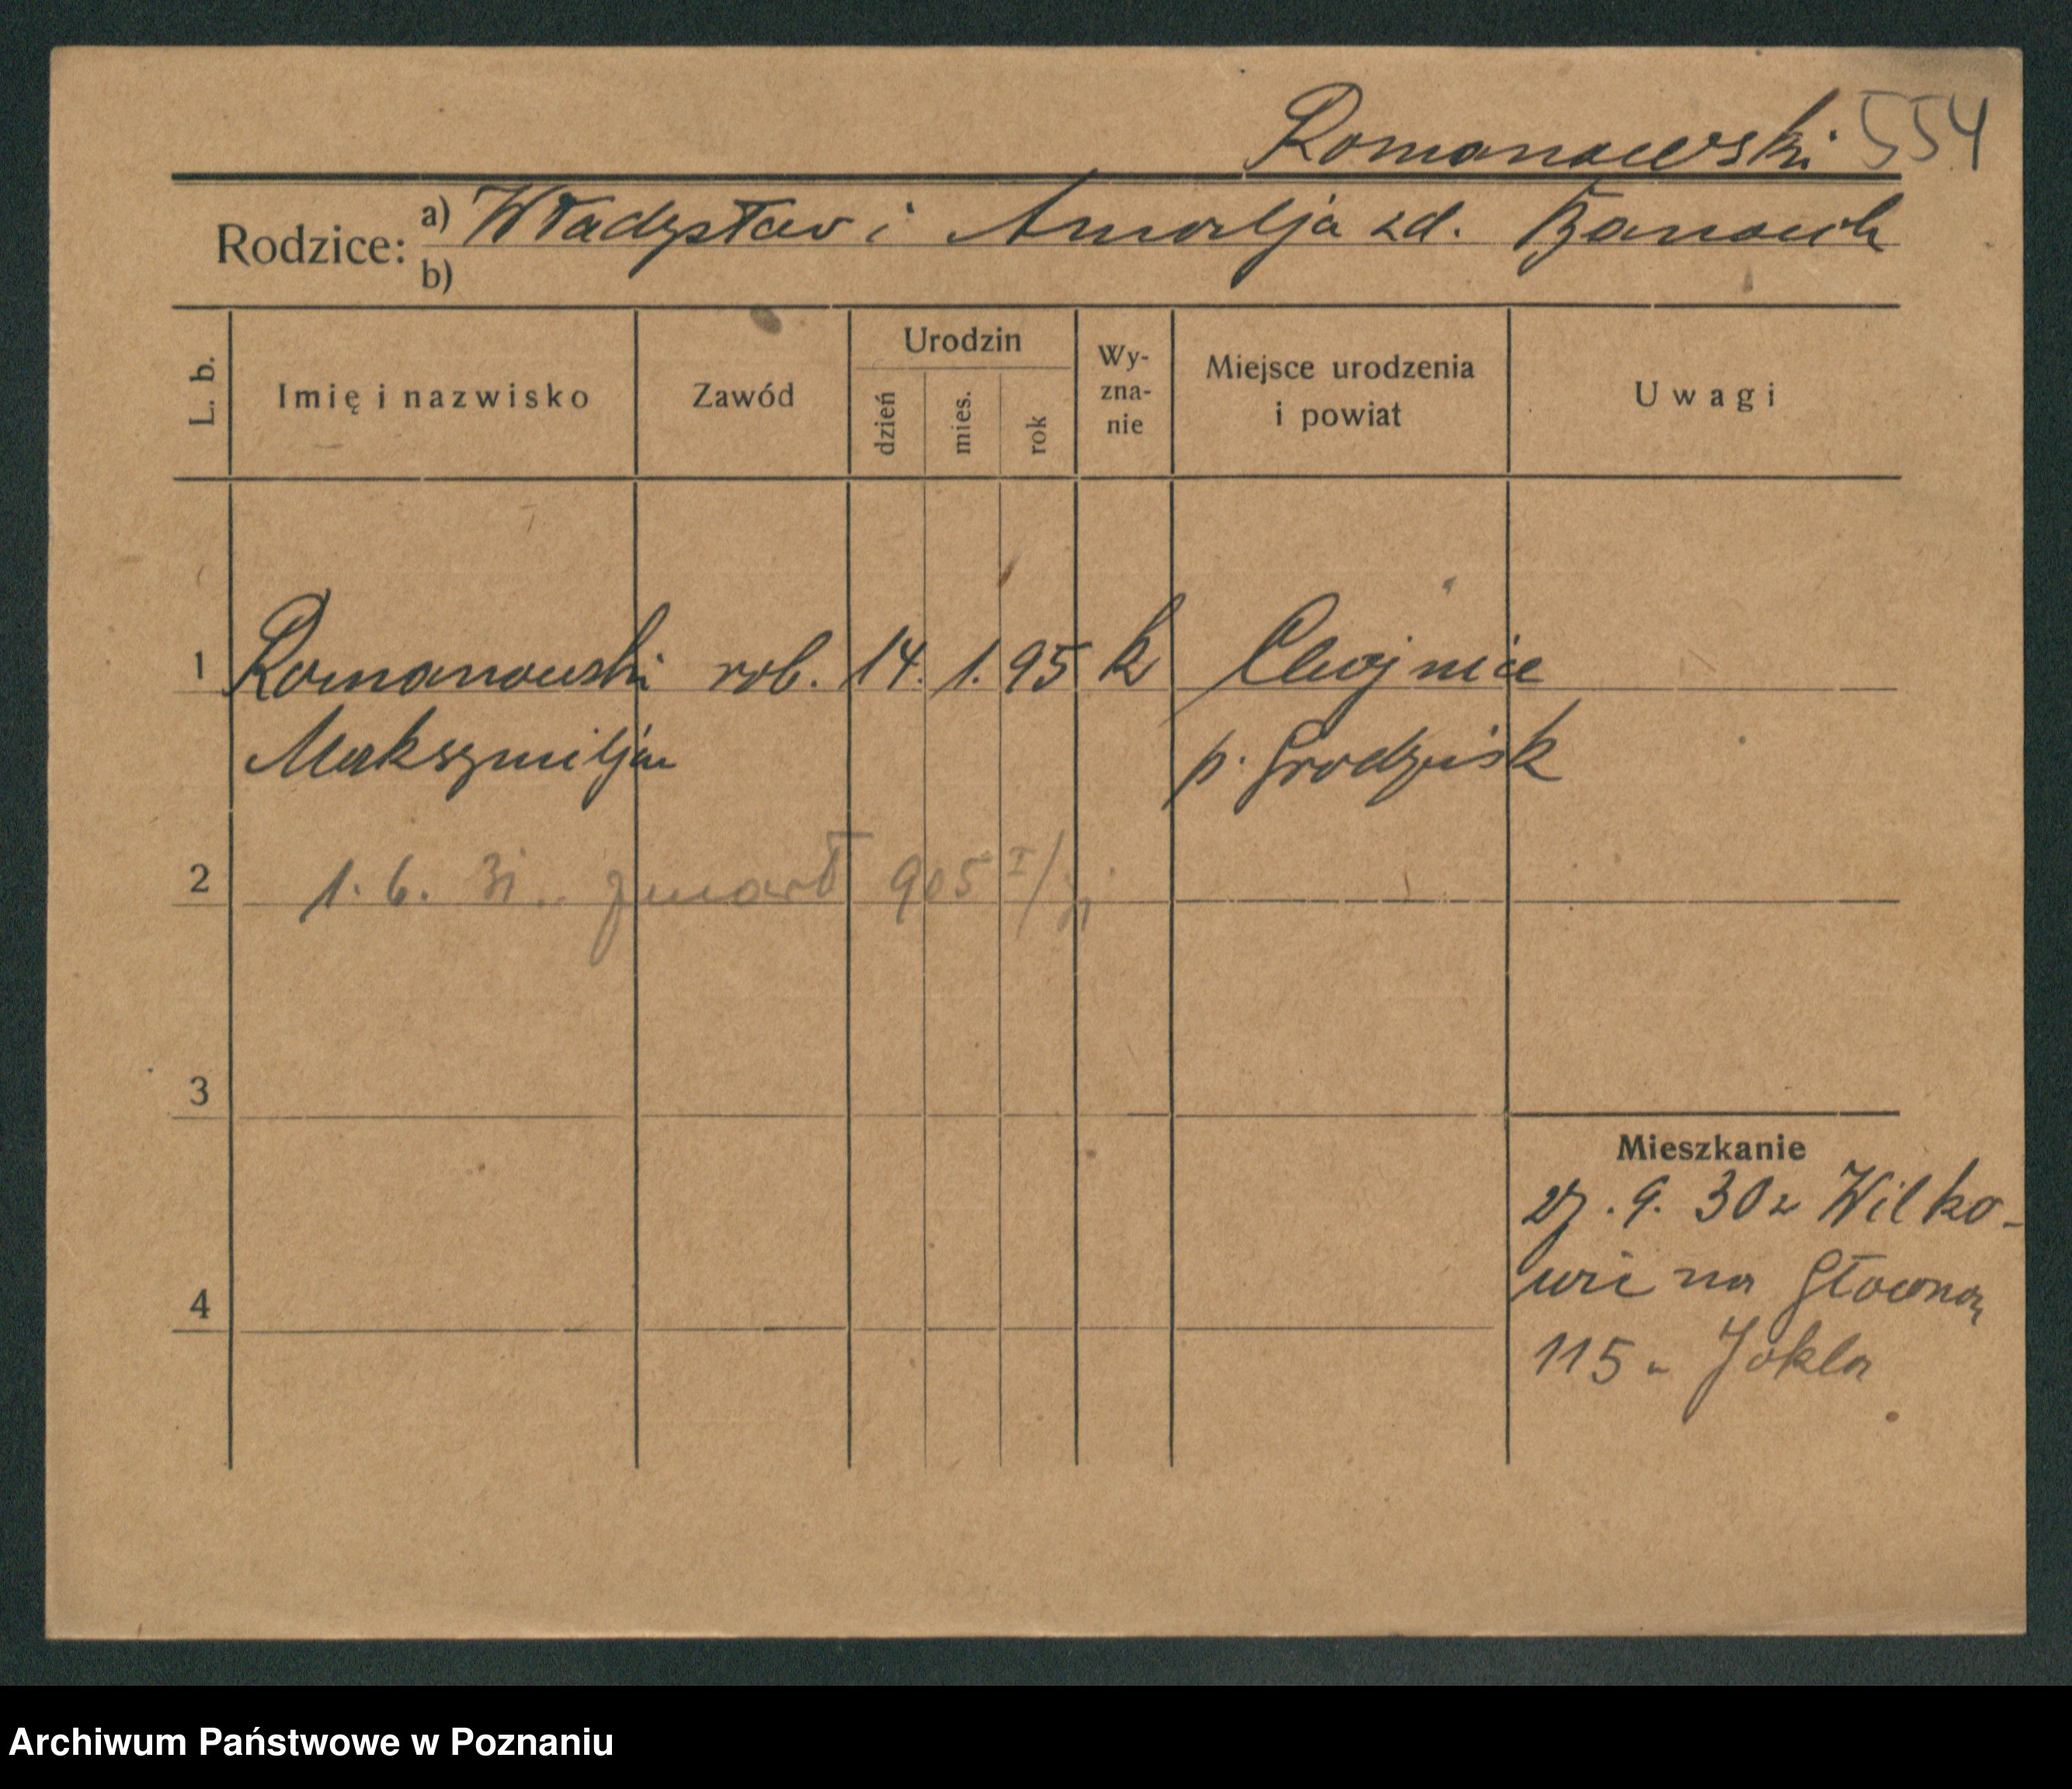 Romanowski 554
Rodzice: a) Władysław i Amalja zd. Banach
b)
L. b. Imię i nazwisko Zawód Urodzin dzień mies. rok Wy-zna-nie Miejsce urodzenia i powiat Uwagi
1 Romanowski rob. 14. 1. 95 k Chojnice
Maksymiljan p. Grodzisk
2 1. 6. 31. zmarł 905 I/31
3
Mieszkanie
27. 9. 30 z Wilko-
wic na Główną
4
115 u Jokla
Archiwum Państwowe w Poznaniu